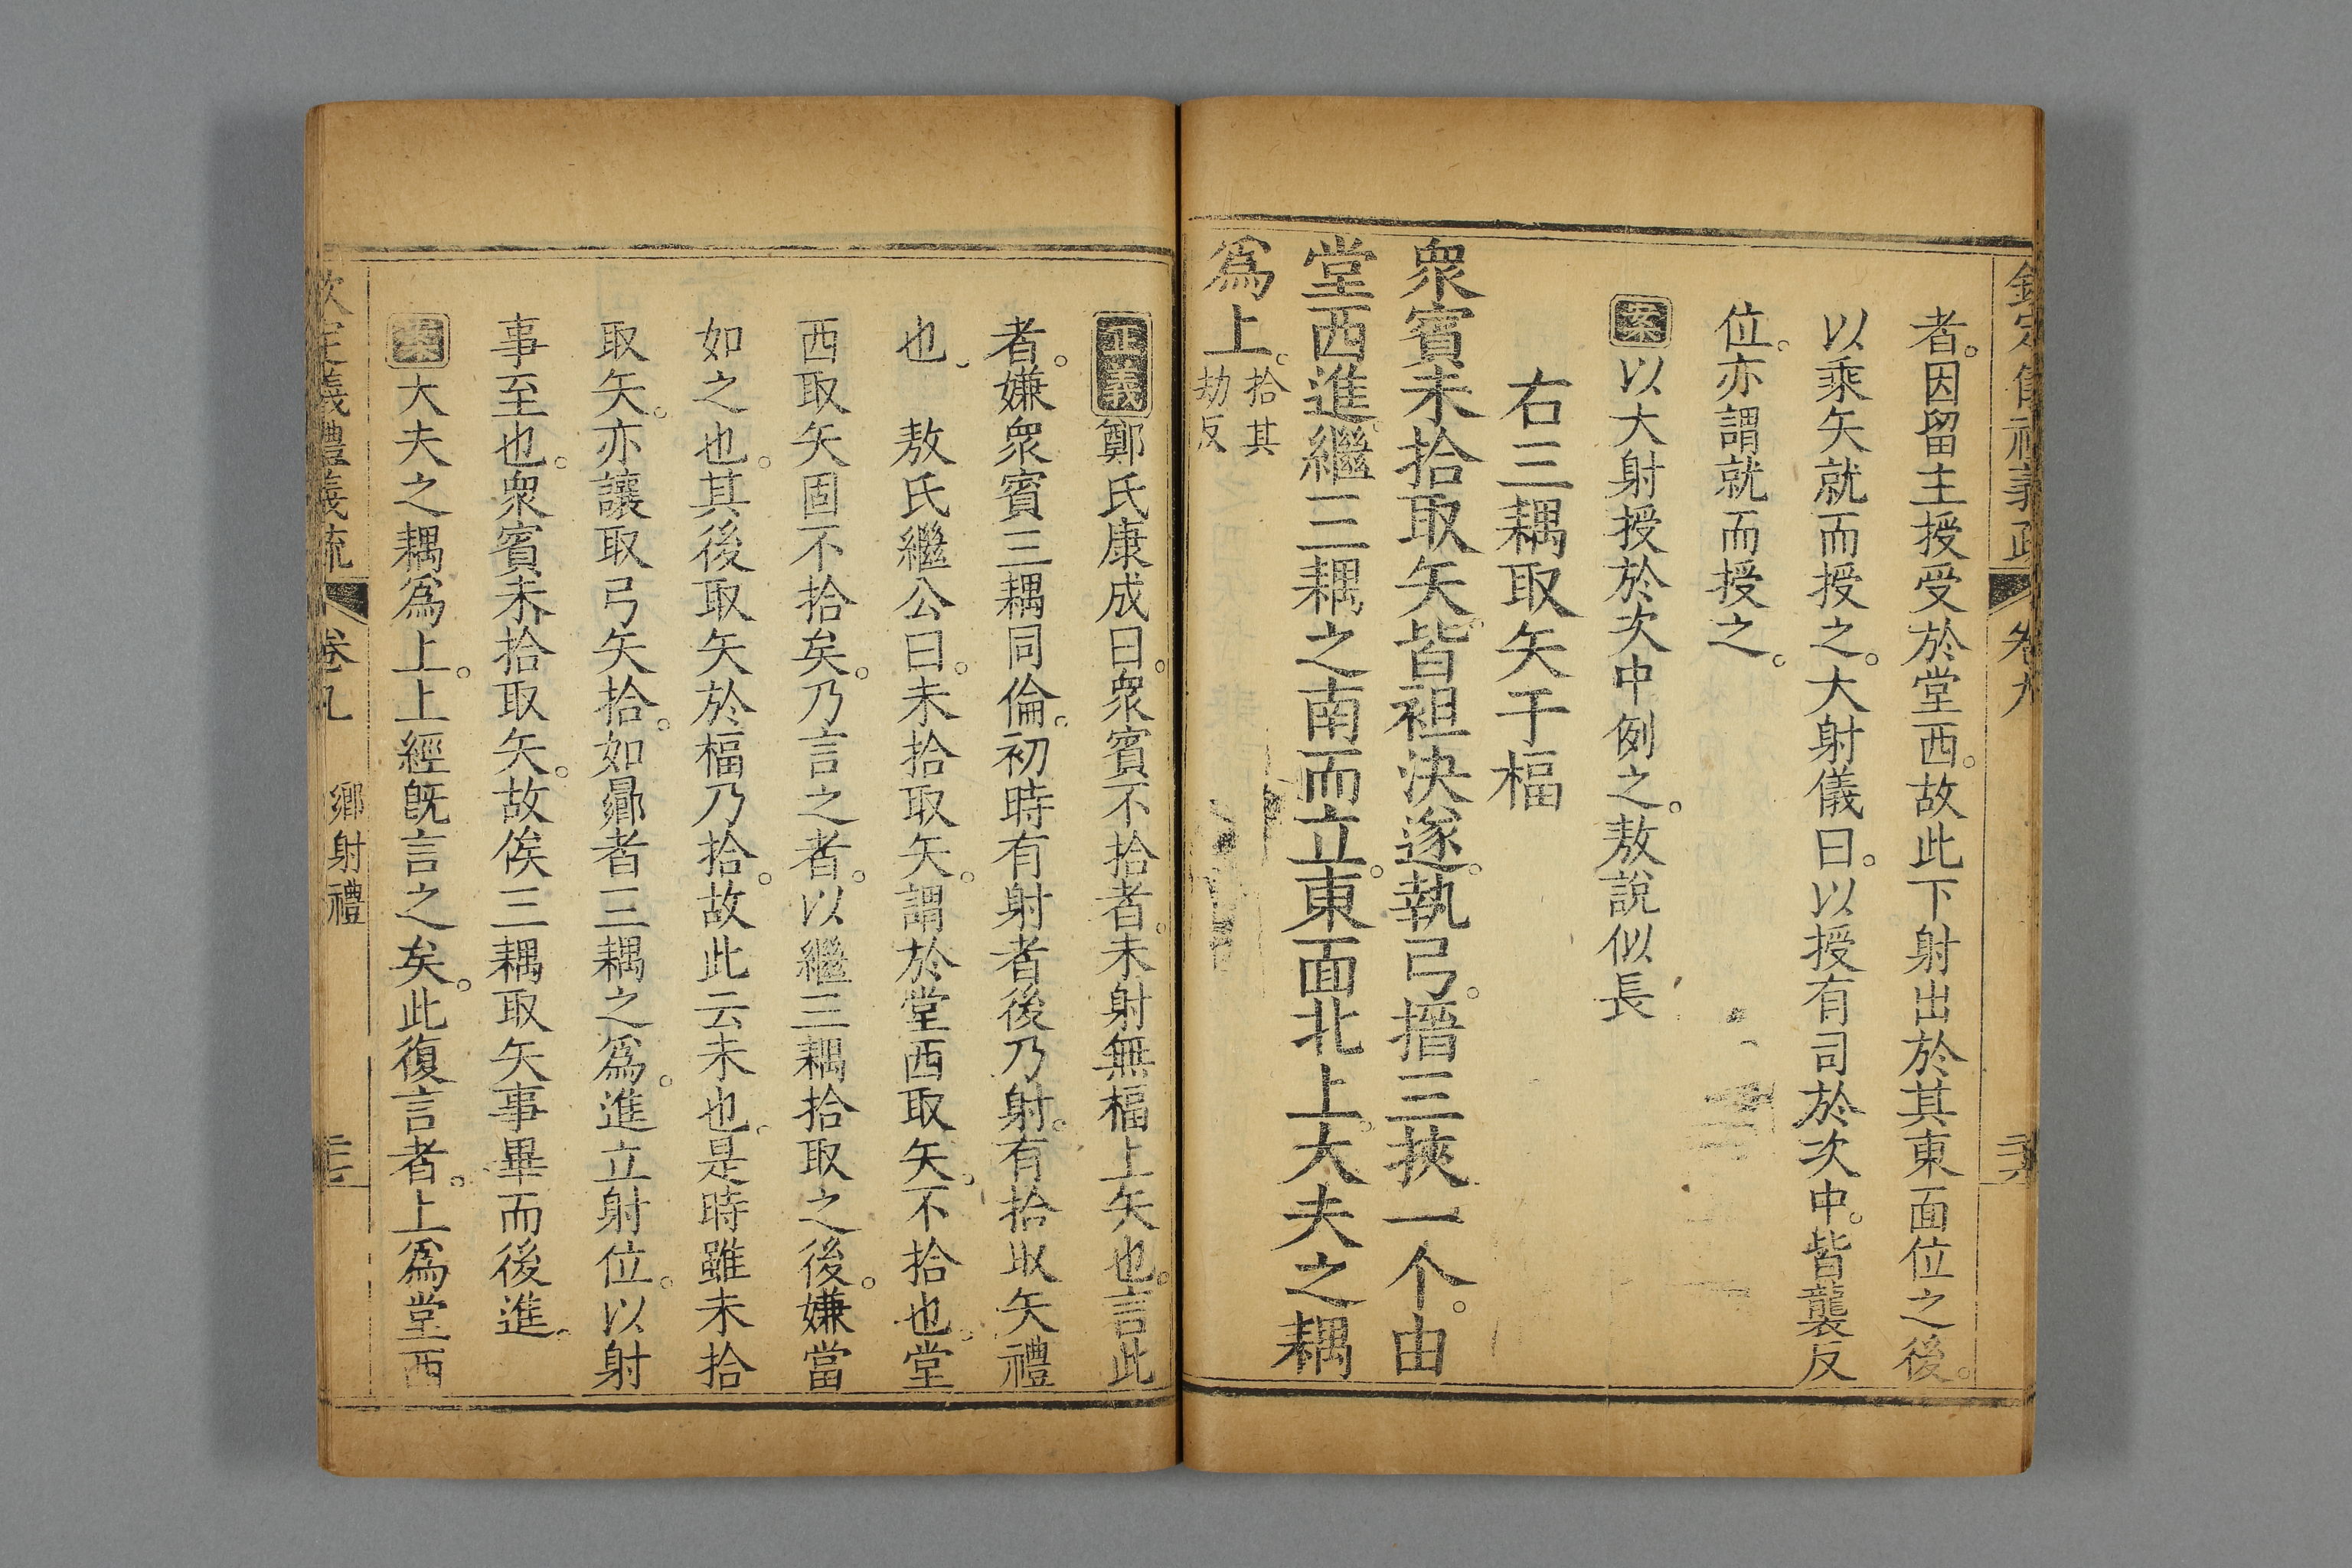 欽定儀禮義疏 卷九
者。因留主授受於堂西。故此下射出於其東面位之後。
以乘矢就而授之。大射儀曰。以授有司於次中。皆襲反
位。亦謂就而授之。
案以大射授於次中例之。敖說似長
右三耦取矢于楅
衆賓未拾取矢。皆袒決遂。執弓。搢三挾一个。由
堂西進。繼三耦之南而立。東面北上。大夫之耦
爲上。拾其
劫反
正義鄭氏康成曰。衆賓不拾者。未射無楅上矢也。言此
者。嫌衆賓三耦同倫。初時有射者後乃射。有拾取矢禮
也。 敖氏繼公曰。未拾取矢。謂於堂西取矢。不拾也。堂
西取矢固不拾矣。乃言之者。以繼三耦拾取之後。嫌當
如之也。其後取矢於楅乃拾。故此云未也。是時雖未拾
取矢。亦讓取弓矢拾。如曏者三耦之爲。進立射位。以射
事至也。衆賓未拾取矢。故俟三耦取矢事畢而後進。
案大夫之耦爲上。上經旣言之矣。此復言者。上爲堂西
欽定儀禮義疏 卷九 鄉射禮